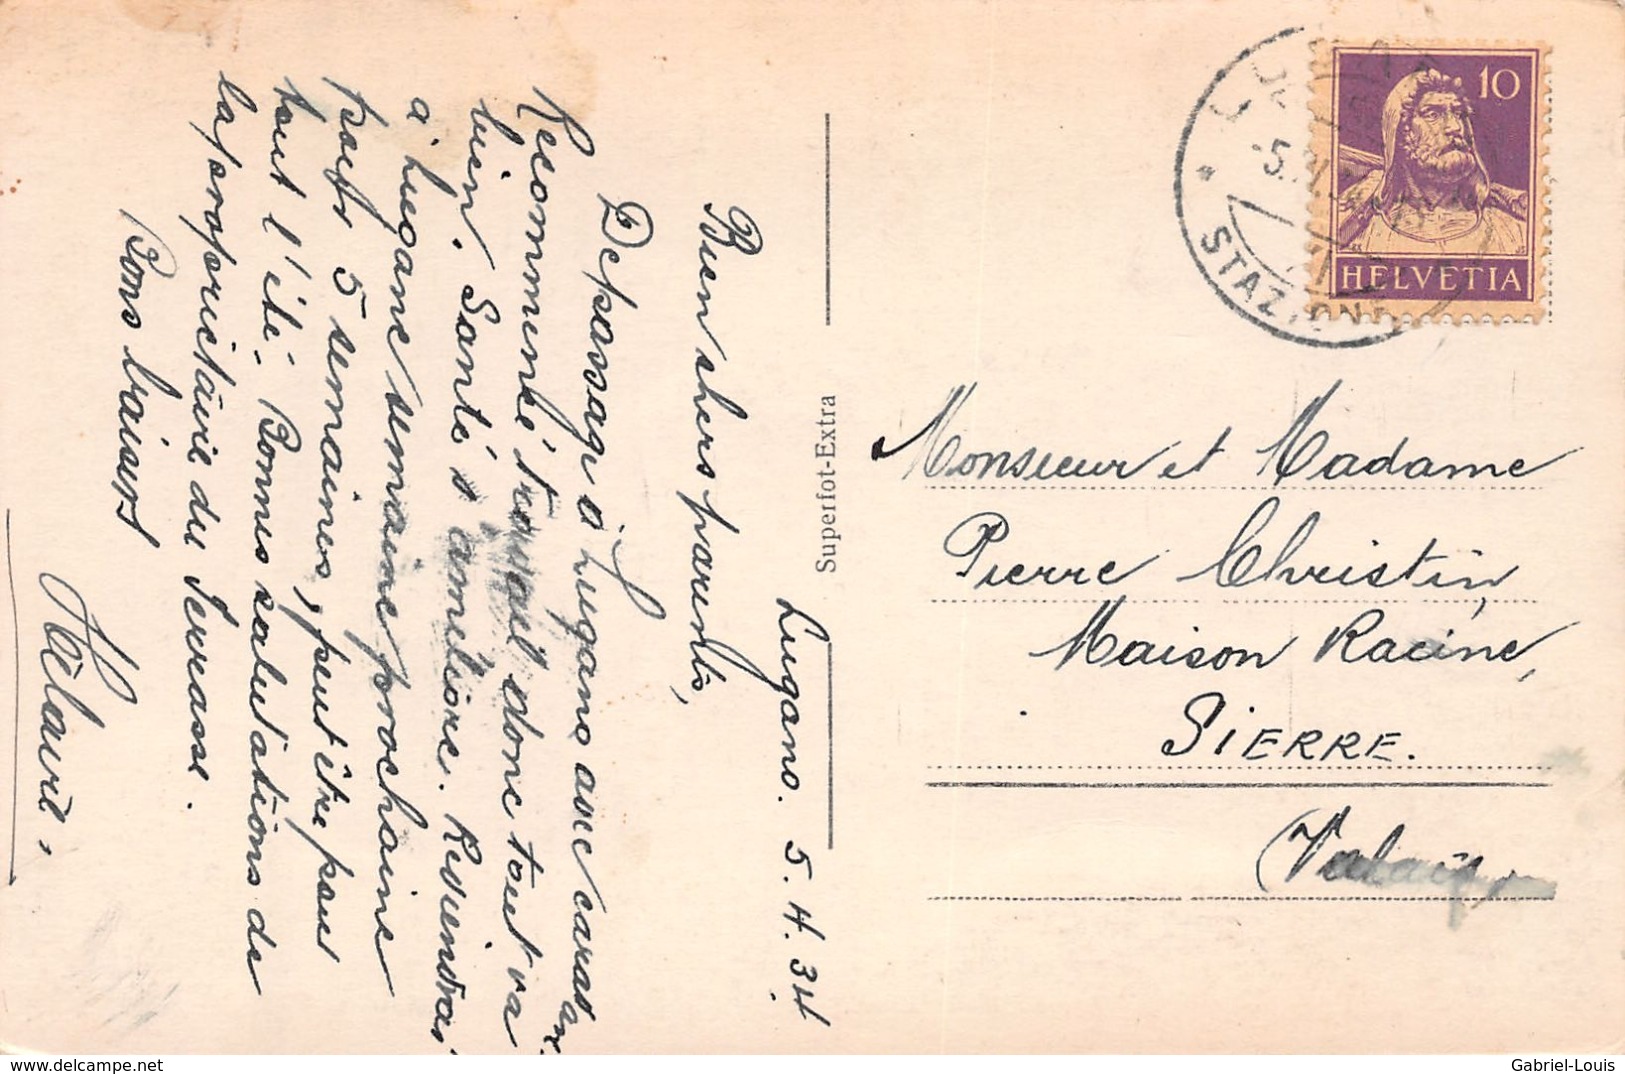 Lugano. 5.4.34
Bien chers parents,
De passage à Lugano avec caravan.
Recommencé travail donc tout va
bien. Santé s'améliore. Reviendrai
à Lugano semaine prochaine
pour 5 semaines, peut être pour
tout l'été. Bonnes salutations de
la propriétaire du Terrasse.
Bons baisers
Hilaire,
Superfot-Extra
LUGANO
5.IV.
STAZIONE
10
HELVETIA
Monsieur et Madame
Pierre Christin,
Maison Racine,
SIERRE.
Valais
delcampe.net
Gabriel-Louis